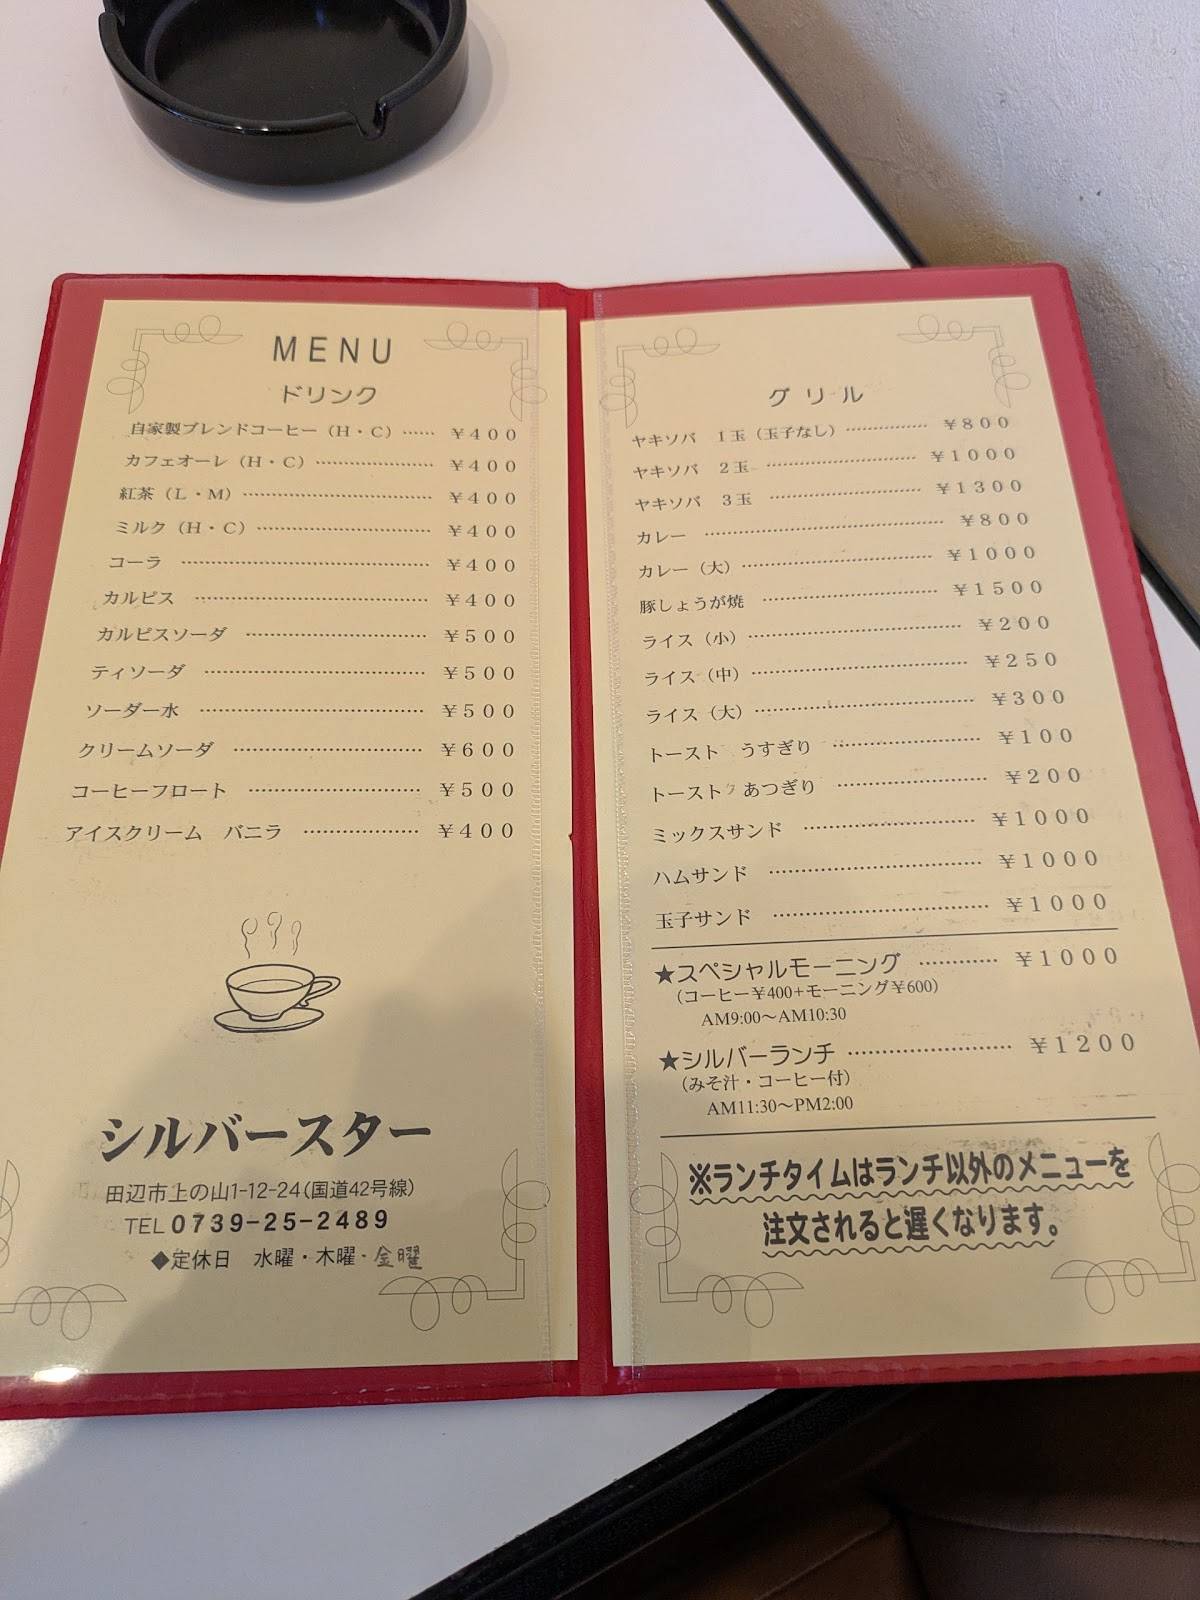 MENU
ドリンク
自家製ブレンドコーヒー（H・C）…… ￥400
カフェオーレ（H・C）………………… ￥400
紅茶（L・M）………………………… ￥400
ミルク（H・C）……………………… ￥400
コーラ ………………………………… ￥400
カルピス ……………………………… ￥400
カルピスソーダ ……………………… ￥500
ティソーダ …………………………… ￥500
ソーダー水 …………………………… ￥500
クリームソーダ ……………………… ￥600
コーヒーフロート …………………… ￥500
アイスクリーム バニラ ……………… ￥400
シルバースター
田辺市上の山1-12-24(国道42号線)
TEL 0739-25-2489
◆定休日 水曜・木曜・金曜
グリル
ヤキソバ 1玉（玉子なし）…………… ￥800
ヤキソバ 2玉 ………………………… ￥1000
ヤキソバ 3玉 ………………………… ￥1300
カレー ………………………………… ￥800
カレー（大）………………………… ￥1000
豚しょうが焼 ………………………… ￥1500
ライス（小）………………………… ￥200
ライス（中）………………………… ￥250
ライス（大）………………………… ￥300
トースト うすぎり ………………… ￥100
トースト あつぎり ………………… ￥200
ミックスサンド ……………………… ￥1000
ハムサンド …………………………… ￥1000
玉子サンド …………………………… ￥1000
★スペシャルモーニング ………… ￥1000
（コーヒー￥400+モーニング￥600）
AM9:00～AM10:30
★シルバーランチ …………………… ￥1200
（みそ汁・コーヒー付）
AM11:30～PM2:00
※ランチタイムはランチ以外のメニューを
注文されると遅くなります。